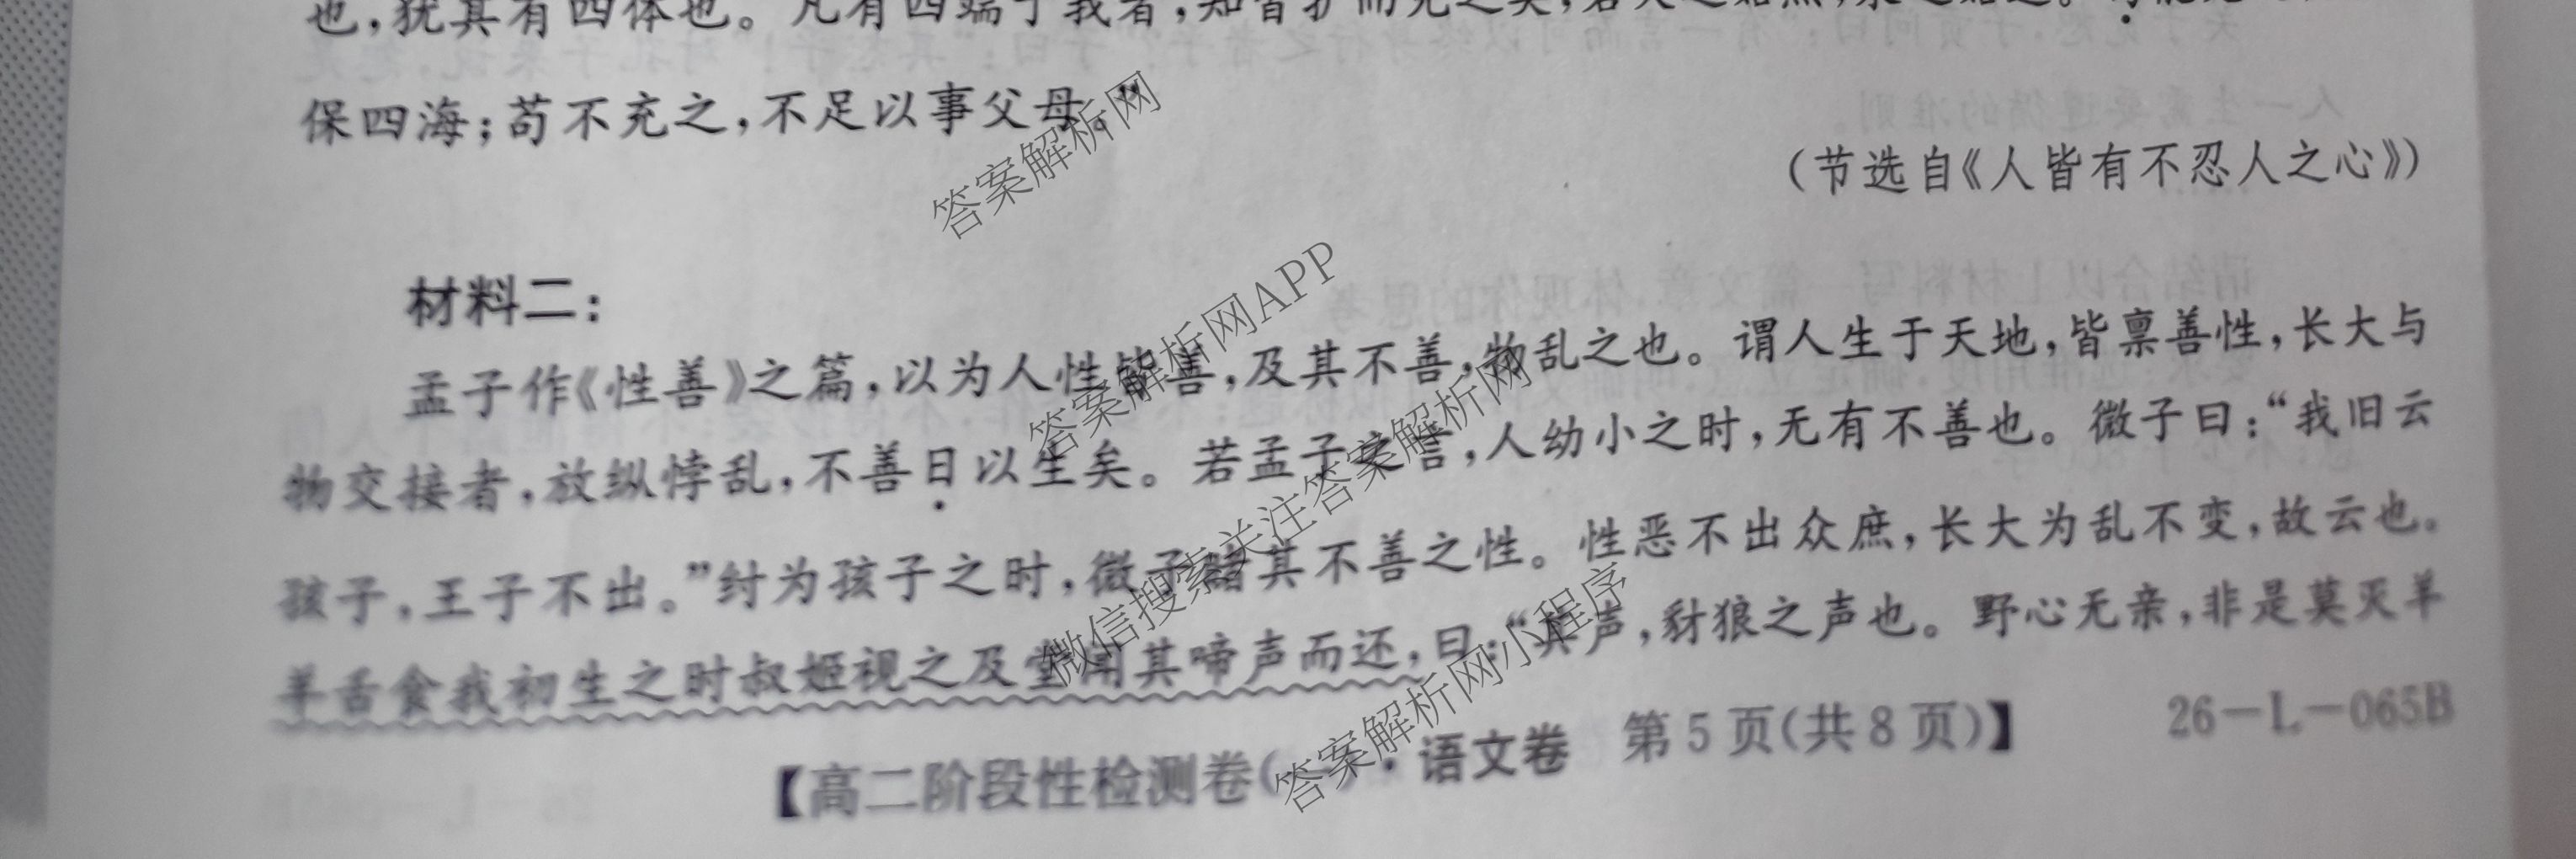 也，犹其有四体也。凡有四端于我者，知皆扩而充之矣，若火之始然，泉之始达。苟能充
保四海；苟不充之，不足以事父母。”
（节选自《人皆有不忍人之心》）
材料二：
孟子作《性善》之篇，以为人性皆善，及其不善，物乱之也。谓人生于天地，皆禀善性，长大与
物交接者，放纵悖乱，不善日以生矣。若孟子之言，人幼小之时，无有不善也。微子曰：“我旧云
孩子，王子不出。”纣为孩子之时，微子睹其不善之性。性恶不出众庶，长大为乱不变，故云也。
羊舌食我初生之时叔姬视之及堂闻其啼声而还，曰：“其声，豺狼之声也。野心无亲，非是莫灭羊
【高二阶段性检测卷( )·语文卷 第5页(共8页)】 26-L-065B
答案解析网
答案解析网APP
微信搜索关注答案解析网
答案解析网小程序